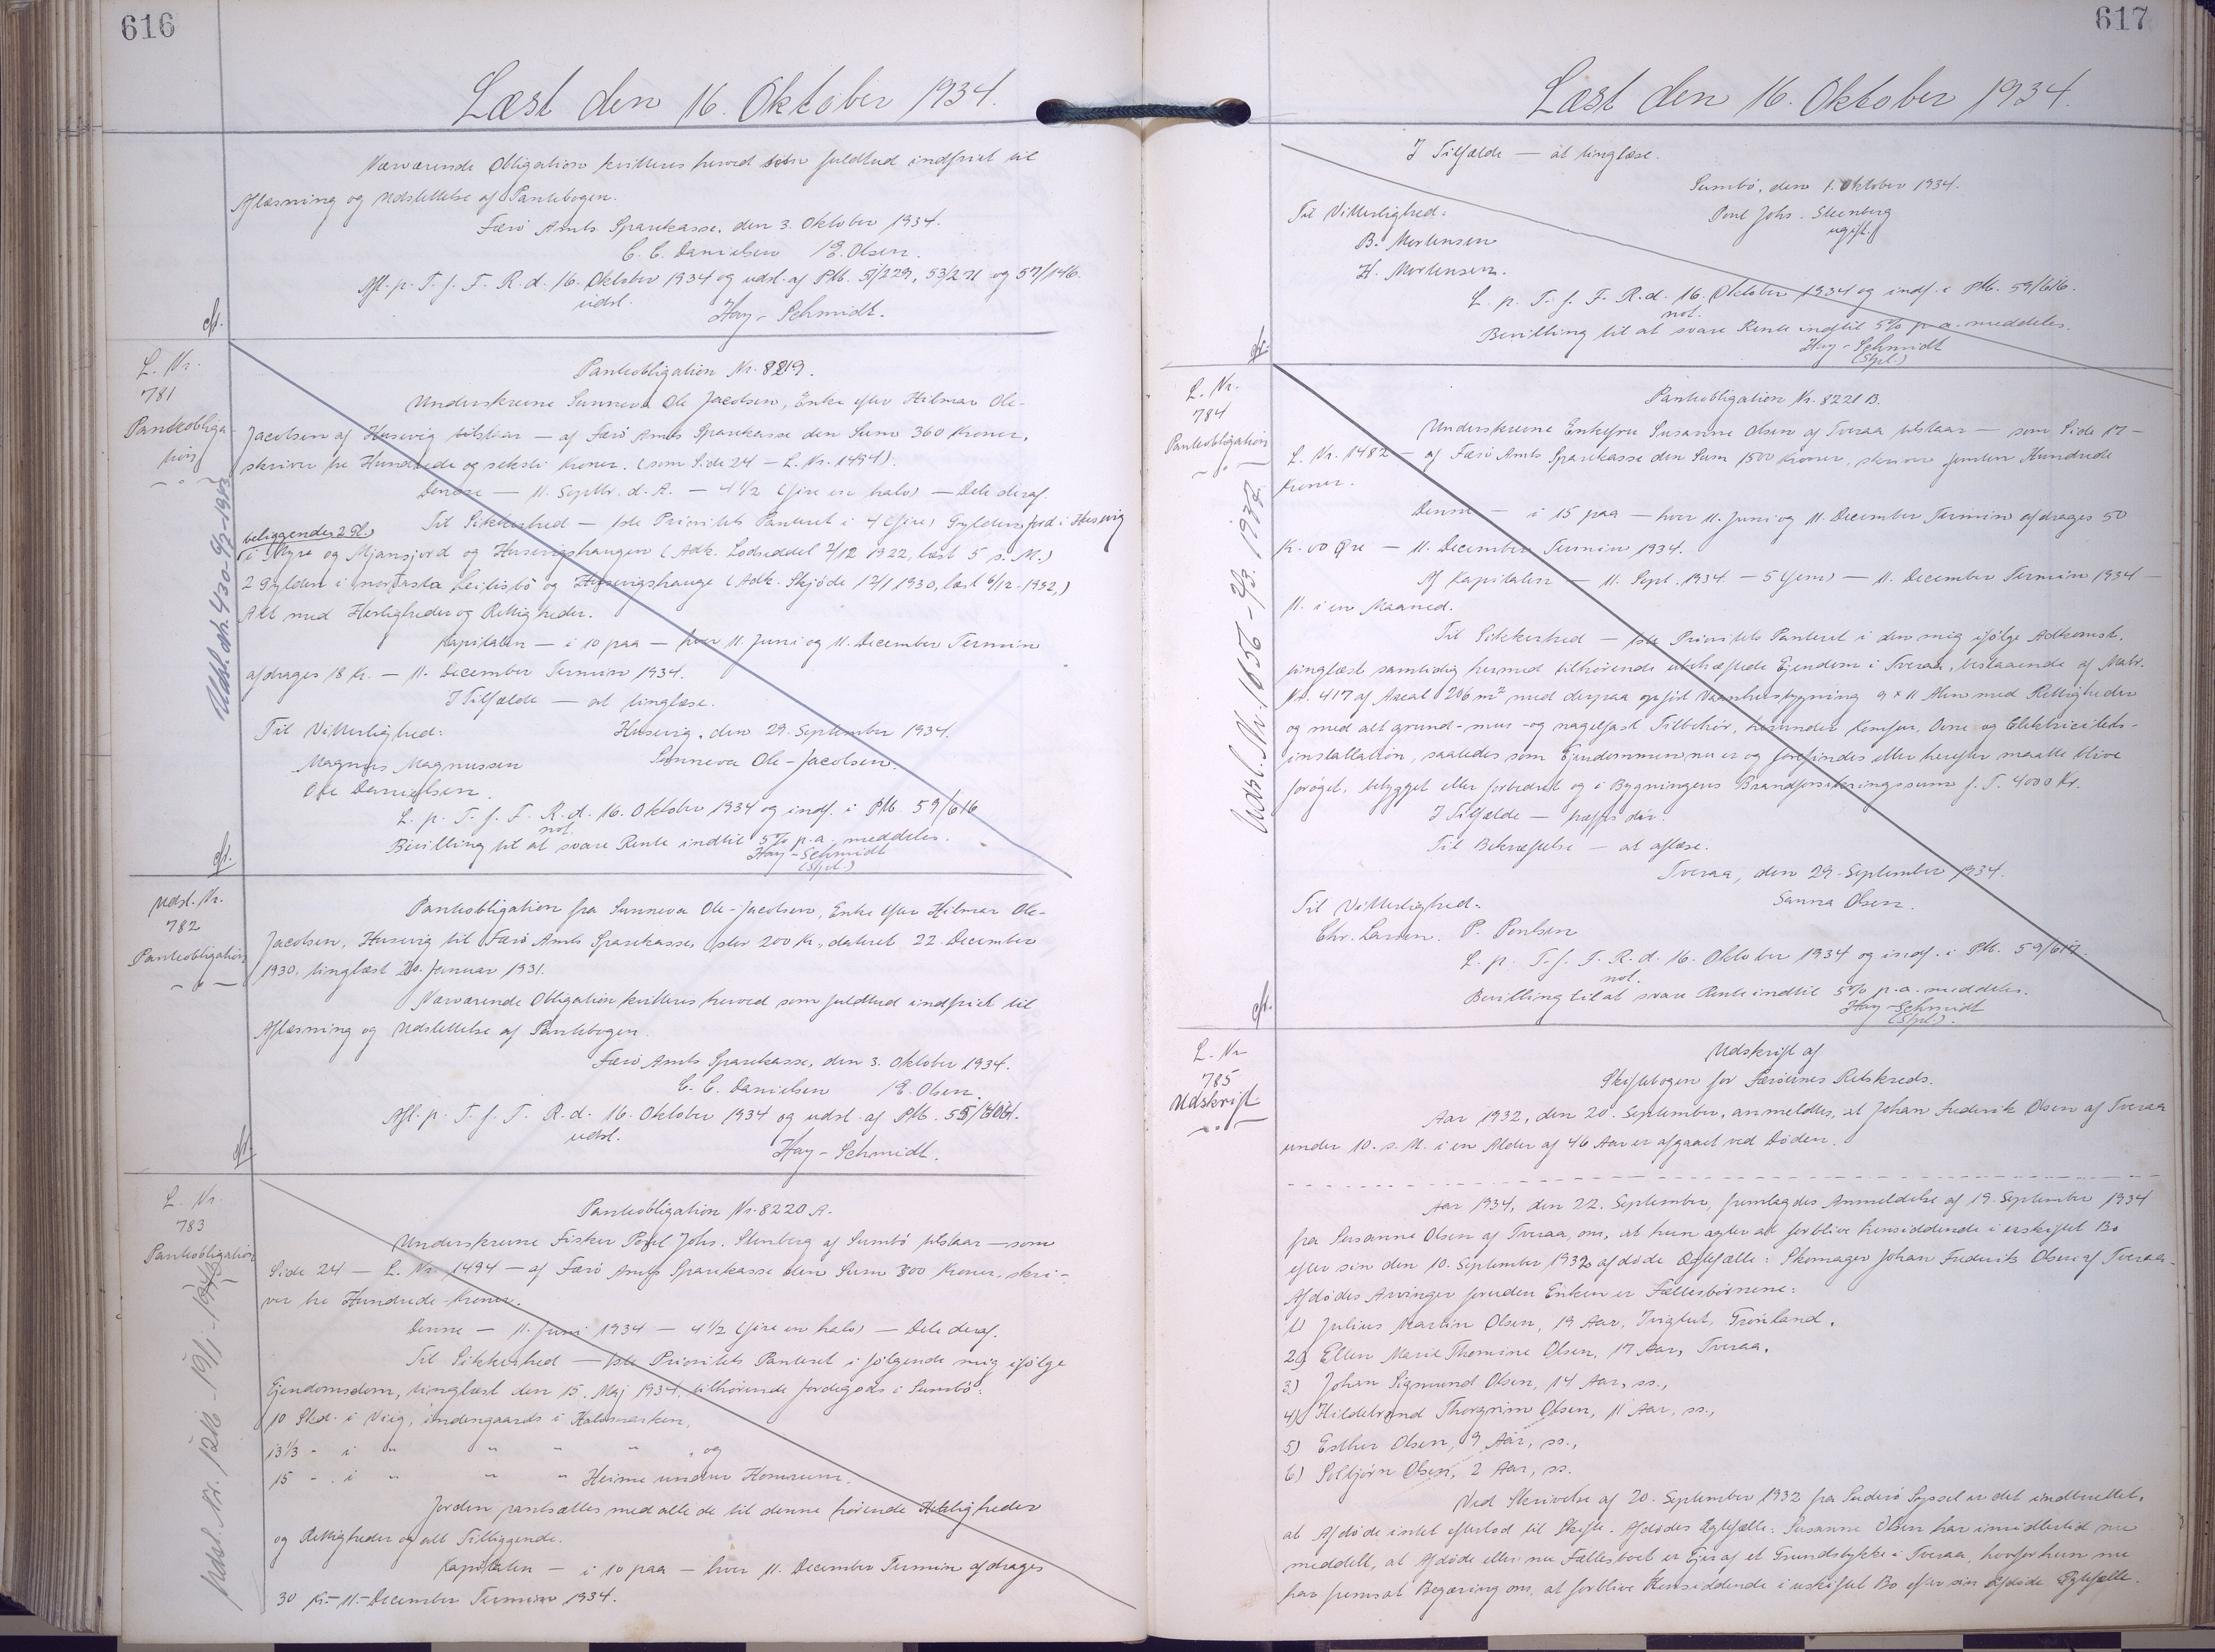 616
Læst den 16. Oktober 1934.
Nærværende Obligation kvitteres herved som fuldtud indfriet til
Aflæsning og Udslettelse af Pantebogen.
Færø Amts Sparekasse, den 3. Oktober 1934.
C. C. Danielsen /E. Olsen.
Afl. p. T. f. F. R. d. 16. Oktober 1934 og udsl. af Ptb. 51/229, 53/271 og 57/146.
udsl.
Hay-Schmidt.
L. Nr.
781
Pantobliga-
tion
Udsl. d. 430-9/2-1943
Pantobligation Nr. 8219.
Underskrevne Sunneva Ole Jacobsen, Enke efter Hilmar Ole-
Jacobsen af Husevig tilstaar — af Færø Amts Sparekasse den Sum 360 Kroner,
skriver tre Hundrede og seksti Kroner. (som Side 24 — L. Nr. 1494).
Denne — 11. Septbr. d. A. — 4 1/2 (fire en halv) — Dele deraf.
Til Sikkerhed — 1ste Prioritets Panteret i 4 (fire) Gylden Jord i Husevig
beliggende: 2 Gl.
i Myre og Mjansjord og Husevigshaugen (Adk. Lodseddel 2/12 1922, læst 5 s. M.)
2 Gylden i norðasta Leitisbø og Husevigshauge (Adk. Skjøde 12/1 1930, læst 6/12 1932,)
Alt med Herligheder og Rettigheder.
Kapitalen — i 10 paa — hver 11. Juni og 11. December Termin
afdrages 18 Kr. — 11. December Termin 1934.
I Tilfælde — at tinglæse.
Til Vitterlighed: Husevig, den 29. September 1934.
Magnus Magnussen Sunneva Ole-Jacobsen.
Ole Danielsen.
L. p. T. f. F. R. d. 16. Oktober 1934 og indf. i Ptb. 59/616
not.
Bevilling til at svare Rente indtil 5% p. a. meddeles.
Hay-Schmidt
(Stpl.)
Udsl. Nr.
782
Pantobligation
Pantobligation fra Sunneva Ole-Jacobsen, Enke efter Hilmar Ole-
Jacobsen, Husevig til Færø Amts Sparekasse, stor 200 Kr., dateret 22. December
1930, tinglæst 20. Januar 1931.
Nærværende Obligation kvitteres herved som fuldtud indfriet til
Aflæsning og Udslettelse af Pantebogen.
Færø Amts Sparekasse, den 3. Oktober 1934.
C. C. Danielsen /E. Olsen.
Afl. p. T. f. F. R. d. 16. Oktober 1934 og udsl. af Ptb.
udsl.
Hay-Schmidt.
L. Nr.
783
Pantobligation
Udsl. Nr.
Pantobligation Nr. 8220 A.
Underskrevne Fisker Poul Johs. Stenberg af Sumbø tilstaar — som
Side 24 — L. Nr. 1494 — af Færø Amts Sparekasse den Sum 300 Kroner, skri-
ver tre Hundrede Kroner.
Denne — 11. Juni 1934 — 4 1/2 (fire en halv) — Dele deraf.
Til Sikkerhed — 1ste Prioritets Panteret i følgende mig ifølge
Ejendomsdom, tinglæst den 15. Maj 1934, tilhørende Jordegods i Sumbø:
10 Skd. i Viig, indengaards i
13 1/3 - i " " " " , og
15 - i " " " Heime undir Homrum.
Jorden pantsættes med alle de til denne hørende Herligheder
og Rettigheder og alt Tilliggende.
Kapitalen — i 10 paa — hver 11. December Termin afdrages
30 Kr. — 11. December Termin 1934.
617
Læst den 16. Oktober 1934.
I Tilfælde — at tinglæse.
Sumbø, den 1. Oktober 1934.
Til Vitterlighed: Poul Johs. Steenberg
B. Mortensen ugift.
H. Mortensen.
L. p. T. f. F. R. d. 16. Oktober 1934 og indf. i Ptb. 59/616.
not.
Bevilling til at svare Rente indtil 5% p. a. meddeles.
Hay-Schmidt
(Stpl.)
L. Nr.
784
Pantobligation
Udsl. Nr. 1656
Pantobligation Nr. 8221 B.
Underskrevne Enkefru Susanne Olsen af Tveraa tilstaar — som Side 17 —
L. Nr. 1482 — af Færø Amts Sparekasse den Sum 1500 Kroner, skriver femten Hundrede
Kroner.
Denne — i 15 paa — hver 11. Juni og 11. December Termin afdrages 50
K. 00 Øre — 11. December Termin 1934.
Af Kapitalen — 11. Sept. 1934 — 5 (fem) — 11. December Termin 1934 —
11. i en Maaned.
Til Sikkerhed — 1ste Prioritets Panteret i den mig ifølge Adkomst,
tinglæst samtidig hermed tilhørende ubehæftede Ejendom i Tveraa, bestaaende af Matr.
Nr. 417 af Areal 206 m² med derpaa opført Vaaningsbygning 9 x 11 Alen med Rettigheder
og med alt grund- mur- og nagelfast Tilbehør, herunder Komfur, Ovne og Elektricitets-
installation, saaledes som Ejendommen nu er og forefindes eller herefter maatte blive
forøget, bebygget eller forbedret og i Bygningens Brandforsikringssum f. T. 4000 Kr.
I Tilfælde —
Til Bekræftelse — at aflæse.
Tveraa, den 29. September 1934.
Til Vitterlighed: Sanna Olsen.
Chr. Larsen. P. Poulsen
L. p. T. f. F. R. d. 16. Oktober 1934 og indf. i Ptb. 59/617.
not.
Bevilling til at svare Rente indtil 5% p. a. meddeles.
Hay-Schmidt
(Stpl.)
L. Nr
785
Udskrift
Udskrift af
Skiftebogen for Færøernes Retskreds.
Aar 1932, den 20. September, anmeldtes, at Johan Frederik Olsen af Tveraa
under 10. s. M. i en Alder af 46 Aar er afgaaet ved Døden.
Aar 1934, den 22. September, fremlagdes Anmeldelse af 19. September 1934
fra Susanne Olsen af Tveraa, om, at hun agter at forblive hensiddende i uskiftet Bo
efter sin den 10. September 1932 afdøde Ægtefælle: Skomager Johan Frederik Olsen af Tveraa.
Afdødes Arvinger foruden Enken er Fællesbørnene:
1) Julius Martin Olsen, 19 Aar, Ivigtut, Grønland,
2) Ellen Marie Thomine Olsen, 17 Aar, Tveraa,
3) Johan Sigmund Olsen, 14 Aar, ss.,
4) Hildebrand Thorgrim Olsen, 11 Aar, ss.,
5) Esther Olsen, 9 Aar, ss.,
6) Solbjørn Olsen, 2 Aar, ss.
Ved Skrivelse af 20. September 1932 fra Suderø Syssel er det indberettet,
at Afdøde intet efterlod til Skifte. Afdødes Ægtefælle: Susanne Olsen har imidlertid nu
meddelt, at Afdøde eller nu Fællesboet er Ejer af et Grundstykke i Tveraa, hvorfor hun nu
har fremsat Begæring om, at forblive hensiddende i uskiftet Bo efter sin afdøde Ægtefælle.